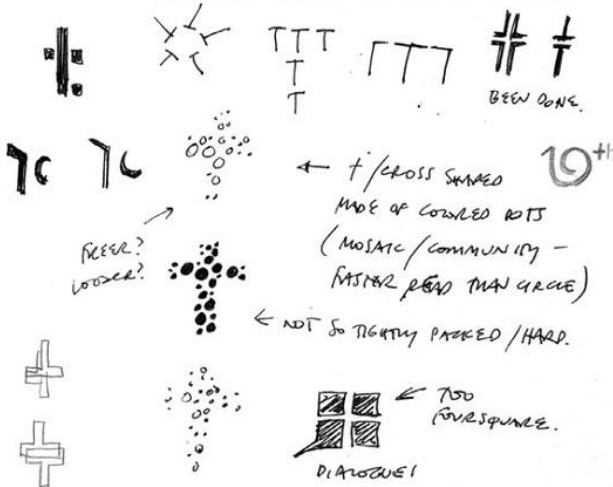 BEEN DONE.
← t/CROSS SHAPED
MADE OF COLORED DOTS
(MOSAIC/COMMUNITY –
FASTER READ THAN CIRCLE)
FREER?
LOOSER?
← NOT SO TIGHTLY PACKED/HARD.
← TOO
FOURSQUARE.
DIALOGUE!